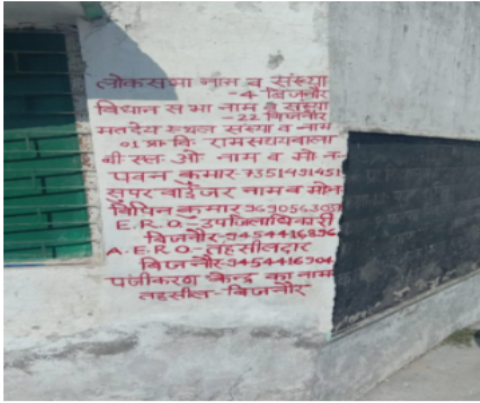 लोकसभा नाम व संख्या
-4 बिजनौर
विधान सभा नाम व संख्या
-22 बिजनौर
मतदेय स्थल संख्या व नाम
01 प्रा. वि.
बी एल ओ नाम व मो न
पवन कुमार-7351491451
सुपरवाईजर नाम व मोन
विपिन कुमार
E.R.O. उपजिलाधिकारी
बिजनौर-9454416896
A.E.R.O-तहसीलदार
बिजनौर-9454416904
पंजीकरण केन्द्र का नाम
तहसील-बिजनौर